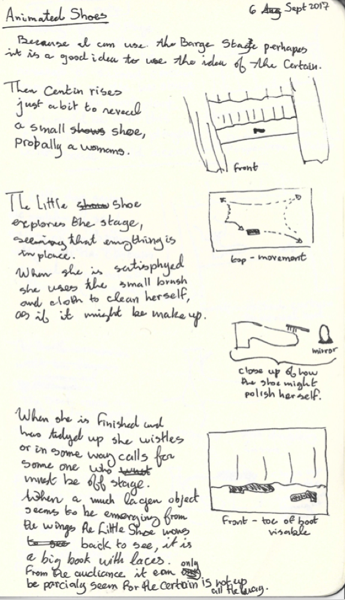 Animated Shoes
6 Aug Sept 2017
Because I can use the Barge Stage perhaps
it is a good idea to use the idea of the Certain.
The Centin rises
just a bit to reveal
a small shows shoe,
propally a womans.
front
The Little show shoe
explores the stage,
seeming that enything is
in place.
When she is satisphyed
she uses the small brush
and cloth to clean herself,
as if it might be make up.
top - movement
mirror
close up of how
the shoe might
polish herself.
When she is finished and
has tidyed up she wistles
or in some way calls for
some one who what
must be off stage.
When a much lagen object
seems to be emerging from
the wings the Little Shoe moves
to see back to see, it is
a big boot with laces.
From the audiance it can only
be parcialy seem for the Certain is not up
all the way.
Front - toe of boot
visable